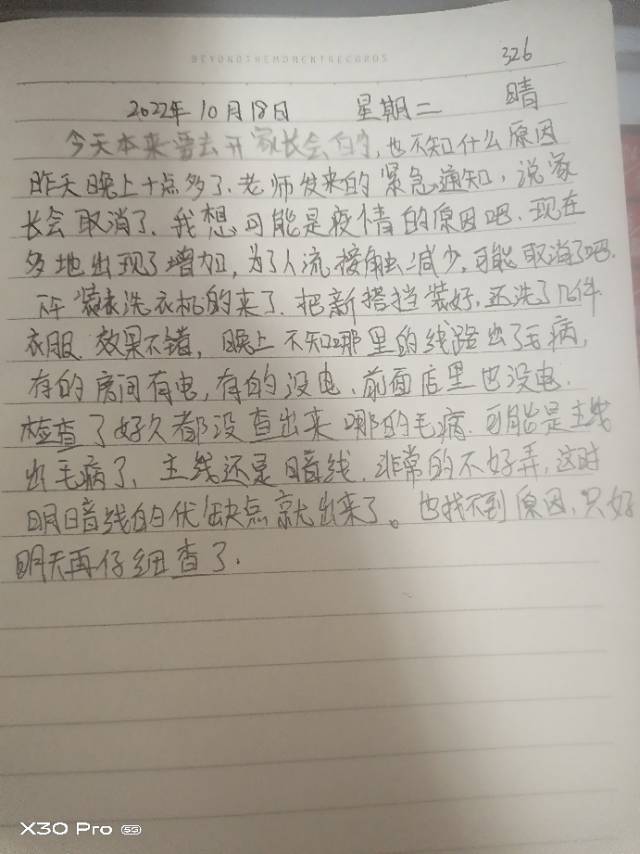 BEYONDTHEMOMENTRECORDS
326
2022年10月18日 星期二 晴
今天本来要去开家长会的,也不知什么原因
昨天晚上十点多了.老师发来的紧急通知,说家
长会取消了.我想可能是疫情的原因吧.现在
多地出现了增加,为了人流接触减少,可能取消了吧.
下午装衣洗衣机的来了.把新搭挡装好,还洗了几件
衣服 效果不错,晚上不知哪里的线路出了毛病,
有的房间有电,有的没电、前面店里也没电.
检查了好久都没查出来哪的毛病.可能是主线
出毛病了、主线还是暗线.非常的不好弄,这时
明暗线的优缺点就出来了。也找不到原因,只好
明天再仔细查了.
X30 Pro 5G